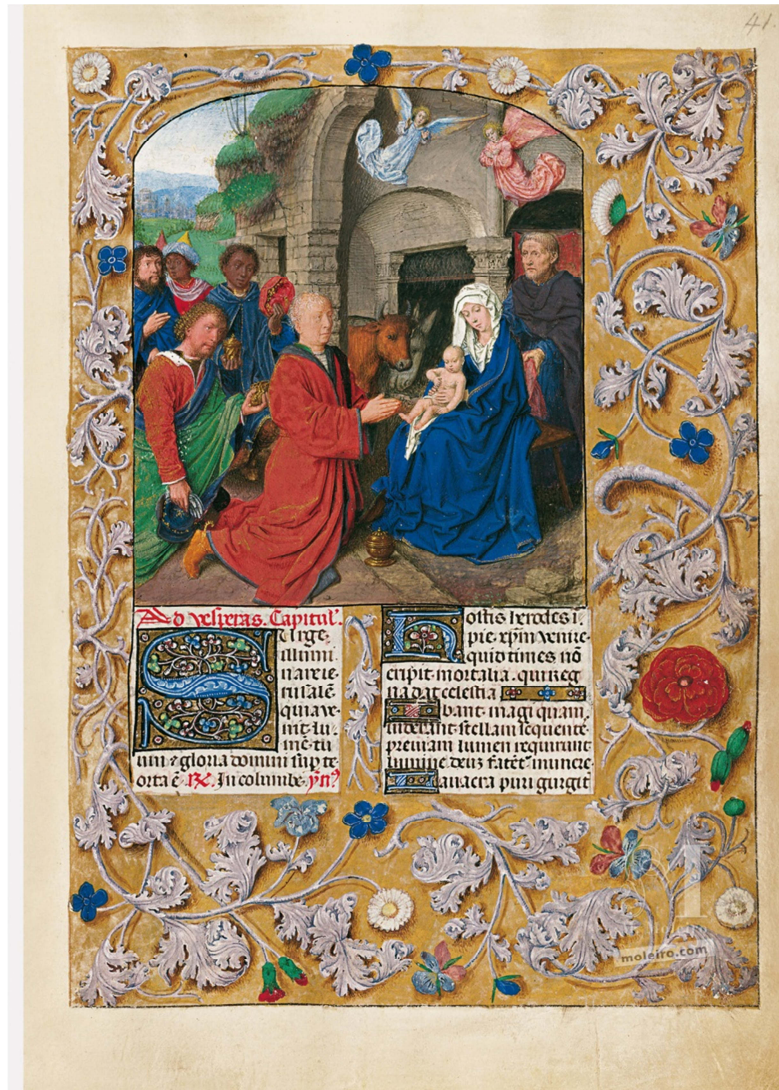 41.
Ad vesperas. Capitul'.
Surge
illumi
nare ie
rusalē
quia ve
nit lu
mē tu
um ⁊ gloria domini sup te
orta ē. R. In columbe. ymꝰ
Hostis herodes i
pie. xp̄m venire
quid times nō
eripit mortalia. qui reg
na dat celestia
Ibant magi quam
viderant stellam sequente
previam lumen requirunt
lumine deuz fatēt munere
Lavacra puri gurgit
moleiro.com